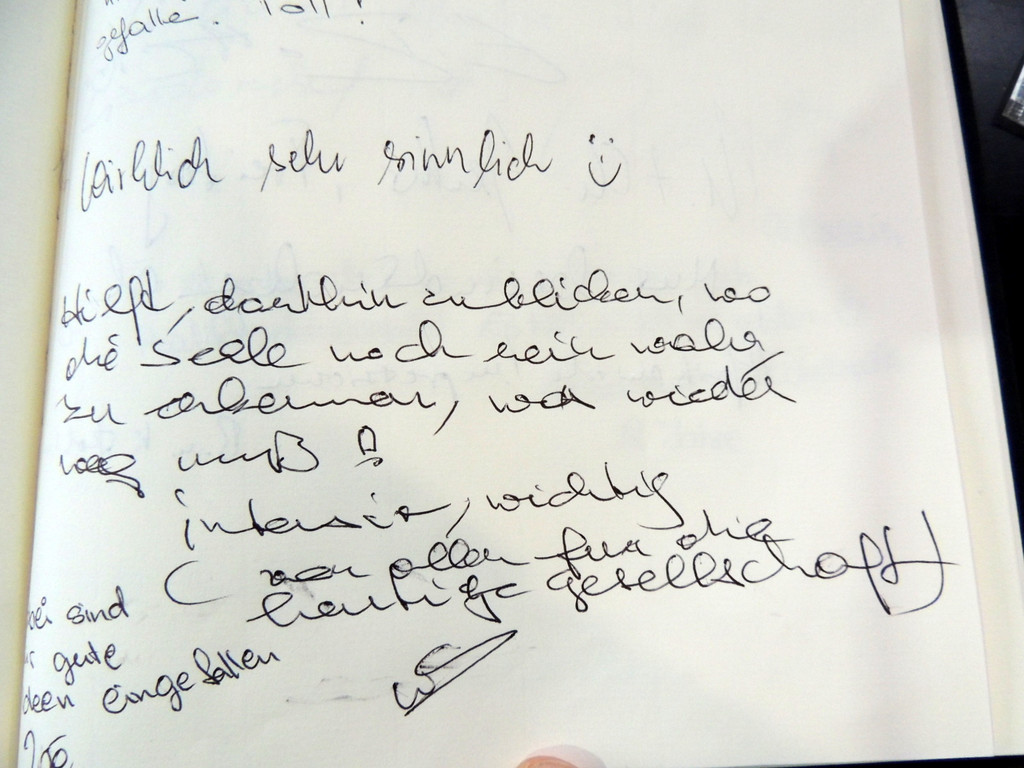 gefalle. Toll!
Wirklich sehr sinnlich ü
Hilft, dorthin zu blicken, wo
die Seele noch rein
zu erkennen, wieder
weg muß!
intensiv, wichtig
(vor allem für die
heutige gesellschaft)
bei sind
gute
deen eingefallen